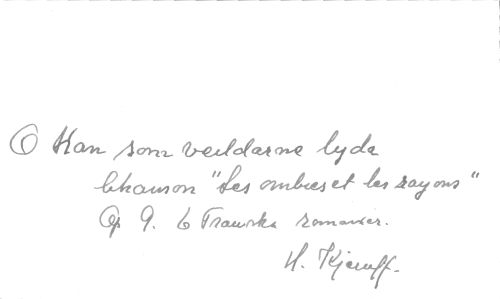 O Han som verldarne lyda
Chanson "Les ombres et les rayons"
Op 9. 6 Franska romanser.
H. Kjerulf.